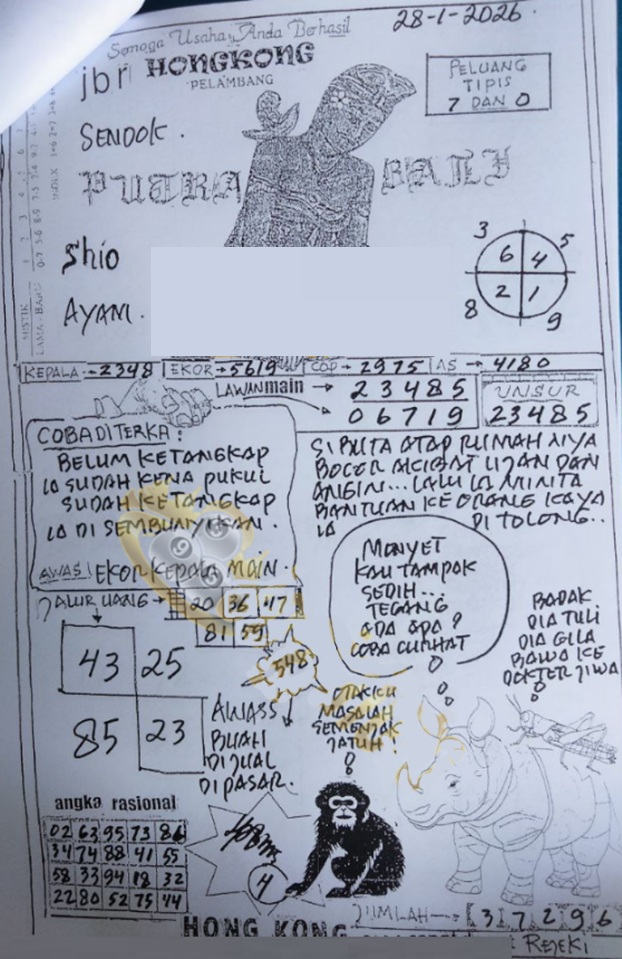 28-1-2026.
Semoga Usaha Anda Berhasil
jbr HONGKONG
PELAMBANG
PELUANG
TIPIS
7 DAN 0
SENDOK.
PUTRA BALI
Shio
AYAM.
3 5
6 4
2 1
8 9
MISTIK
LAMA - BARU
INDEX
KEPALA → 2348 EKOR → 5619 COP → 2975 AS → 4180
LAWAN main → 23485
06719
UNSUR
23485
COBA DITERKA:
BELUM KETANGKAP
IA SUDAH KENA PUKUL
SUDAH KETANGKAP
IA DI SEMBUNYIKAN.
AWAS! EKOR KEPALA MAIN.
SI BUTA ATAP RUMAH NYA
BOCOR AKIBAT UJAN DAN
ANGIN... LALU IA MINTA
BANTUAN KE ORANG KAYA
IA DI TOLONG..
JALUR UANG → 20 36 47
81 59
43 25
85 23
548
AWASS
BUAH
DIJUAL
DIPASAR.
MONYET
KAU TAMPAK
SEDIH...
TEGANG
ADA APA?
COBA CURHAT
OTAKKU
MASALAH
SEMENJAK
JATUH!
BADAK
DIA TULI
DIA GILA
BAWA KE
DOKTER JIWA
angka rasional
02 63 95 73 86
34 74 88 41 55
58 33 94 18 32
22 80 52 75 44
4
JUMLAH → 37296
HONG KONG
REJEKI